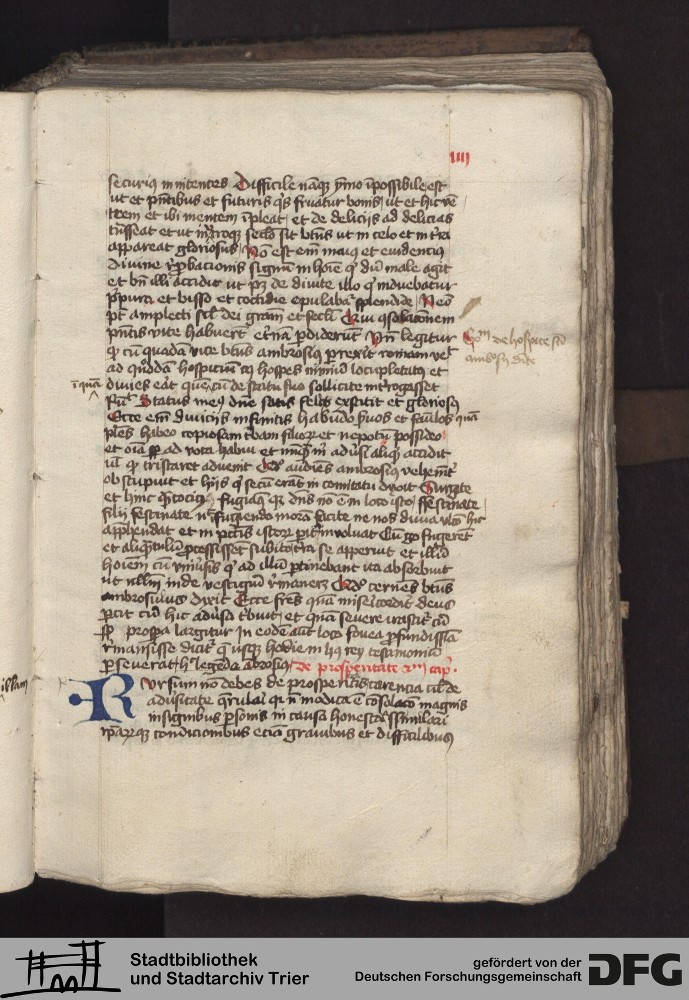 IIII
securius innitentes Difficile namq ymo impossibile est
ut et pntibus et futuris qs fruatur bonis ut et hic ventrem
et ibi mentem impleat et de deliciis ad delicias
transeat et ut in utroq seclo sit btus ut in celo et in terra
appareat gloriosus Non est em maius et evidentius
divine reprobacionis signum in hoie q dum male agit
et bn illi accidit ut pz de divite illo q induebatur
purpura et bisso et cottidie epulabat splendide Nemo
pt amplecti scl dei gram et secli Qui consolacionem
pntis vite habuert eternam perdiderunt Un legitur
q cum quadam vice btus ambrosius perrexit romam vel
ad quoddam hospicium cuius hospes nimium locupletatus et
dives erat cum de statu suo sollicite interrogasset
Status meus dne satis felix exstitit et gloriosus
Ecce em diviciis infinitis habundo servos et famulos quam
plures habeo copiosam turbam filiorum et nepotum possideo
et oia semper ad vota habui et nunq m adversi aliquid accidit
vel q tristaret advenit Quod audiens ambrosius vehementer
obstupuit et hiis q secum erant in comitatu dixit Surgite
et hinc quantocius fugiamus quia dns non est in loco isto festinate
filii festinate nec in fugiendo moram facite ne nos divina ulcio hic
apprehendat et in pctis istorum pariter involvat Cum ergo fugerent
et aliquantulum processissent subito terra se apperuit et illum
hoiem cum universis q ad illum pertinebant ita absorbuit
ut nullum inde vestigium remaneret Quod cernens btus
ambrosius dixit Ecce fres quam misericorditer deus
parcit cum hic adversa tribuit et quam severe irascitur cum
semper prospera largitur In eodem autem loco fovea profundissima
remansisse dicitur q usq hodie in hius rey testimonium
perseverat hec legenda ambrosii de prosperitate cap
Rursum non debes de prosperitatis carencia vel de
adversitate querulari quia non modica est consolacio magnis
insignibus personis in causa honesta assimilari
in paribusq condicionibus etiam gravibus et difficilibus
de hospite sancti
ambrosii
Stadtbibliothek
und Stadtarchiv Trier
gefördert von der
Deutschen Forschungsgemeinschaft
DFG